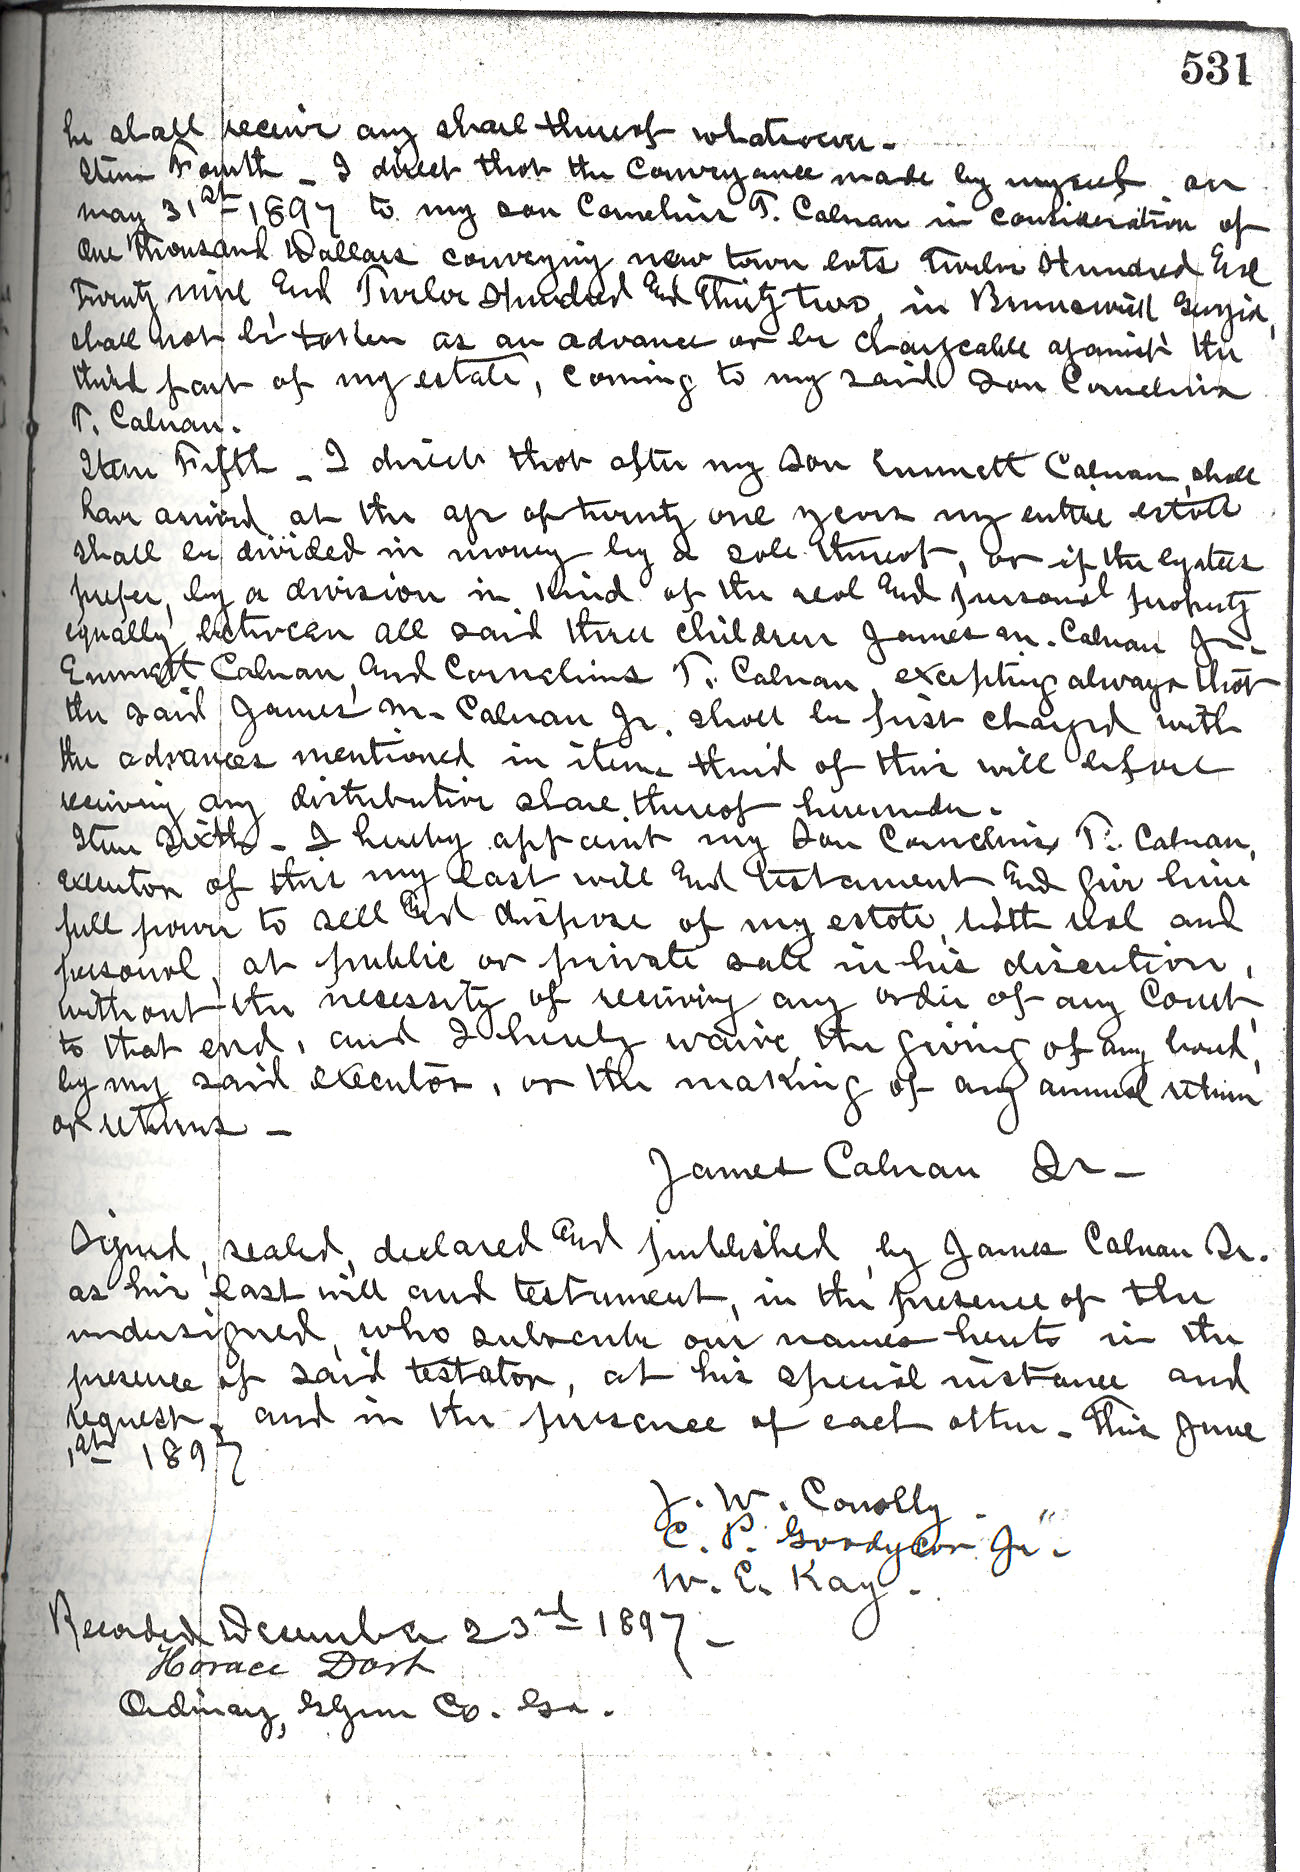 531
he shall receive any share thereof whatsoever -
Item Fourth - I direct that the conveyance made by myself on
may 31st 1897 to my son Cornelius T. Calnan in consideration of
One thousand Dollars conveying new town lots Twelve Hundred And
Twenty nine And Twelve Hundred And Thirty two, in Brunswick Georgia,
shall not be taken as an advance or be chargeable against the
third part of my estate, coming to my said Son Cornelius
T. Calnan.
Item Fifth - I direct that after my Son Emmett Calnan, shall
have arrived at the age of twenty one years my entire estate
shall be divided in money by a sale thereof, or if the legatees
prefer, by a division in kind of the real And personal property
equally between all said three children James M. Calnan Jr.
Emmett Calnan, And Cornelius T. Calnan, excepting always that
the said James M. Calnan Jr. shall be first charged with
the advances mentioned in item third of this will before
receiving any distributive share thereof hereunder.
Item Sixth - I hereby appoint my Son Cornelius T. Calnan,
executor of this my last will And testament And give him
full power to sell And dispose of my estate, both real and
personal, at public or private sale in his discretion,
without the necessity of receiving any order of any Court,
to that end, and I hereby waive the giving of any bond,
by my said executor, or the making of any annual return
or returns -
James Calnan Sr -
Signed, sealed, declared And published, by James Calnan Sr.
as his last will and testament, in the presence of the
undersigned, who subscribe our names hereto in the
presence of said testator, at his special instance and
request, and in the presence of each other - This June
1st 1897
J. W. Conolly
C. P. Goodyear Jr.
W. E. Kay.
Recorded December 23rd 1897 -
Horace Dart
Ordinary, Glynn Co. Ga.